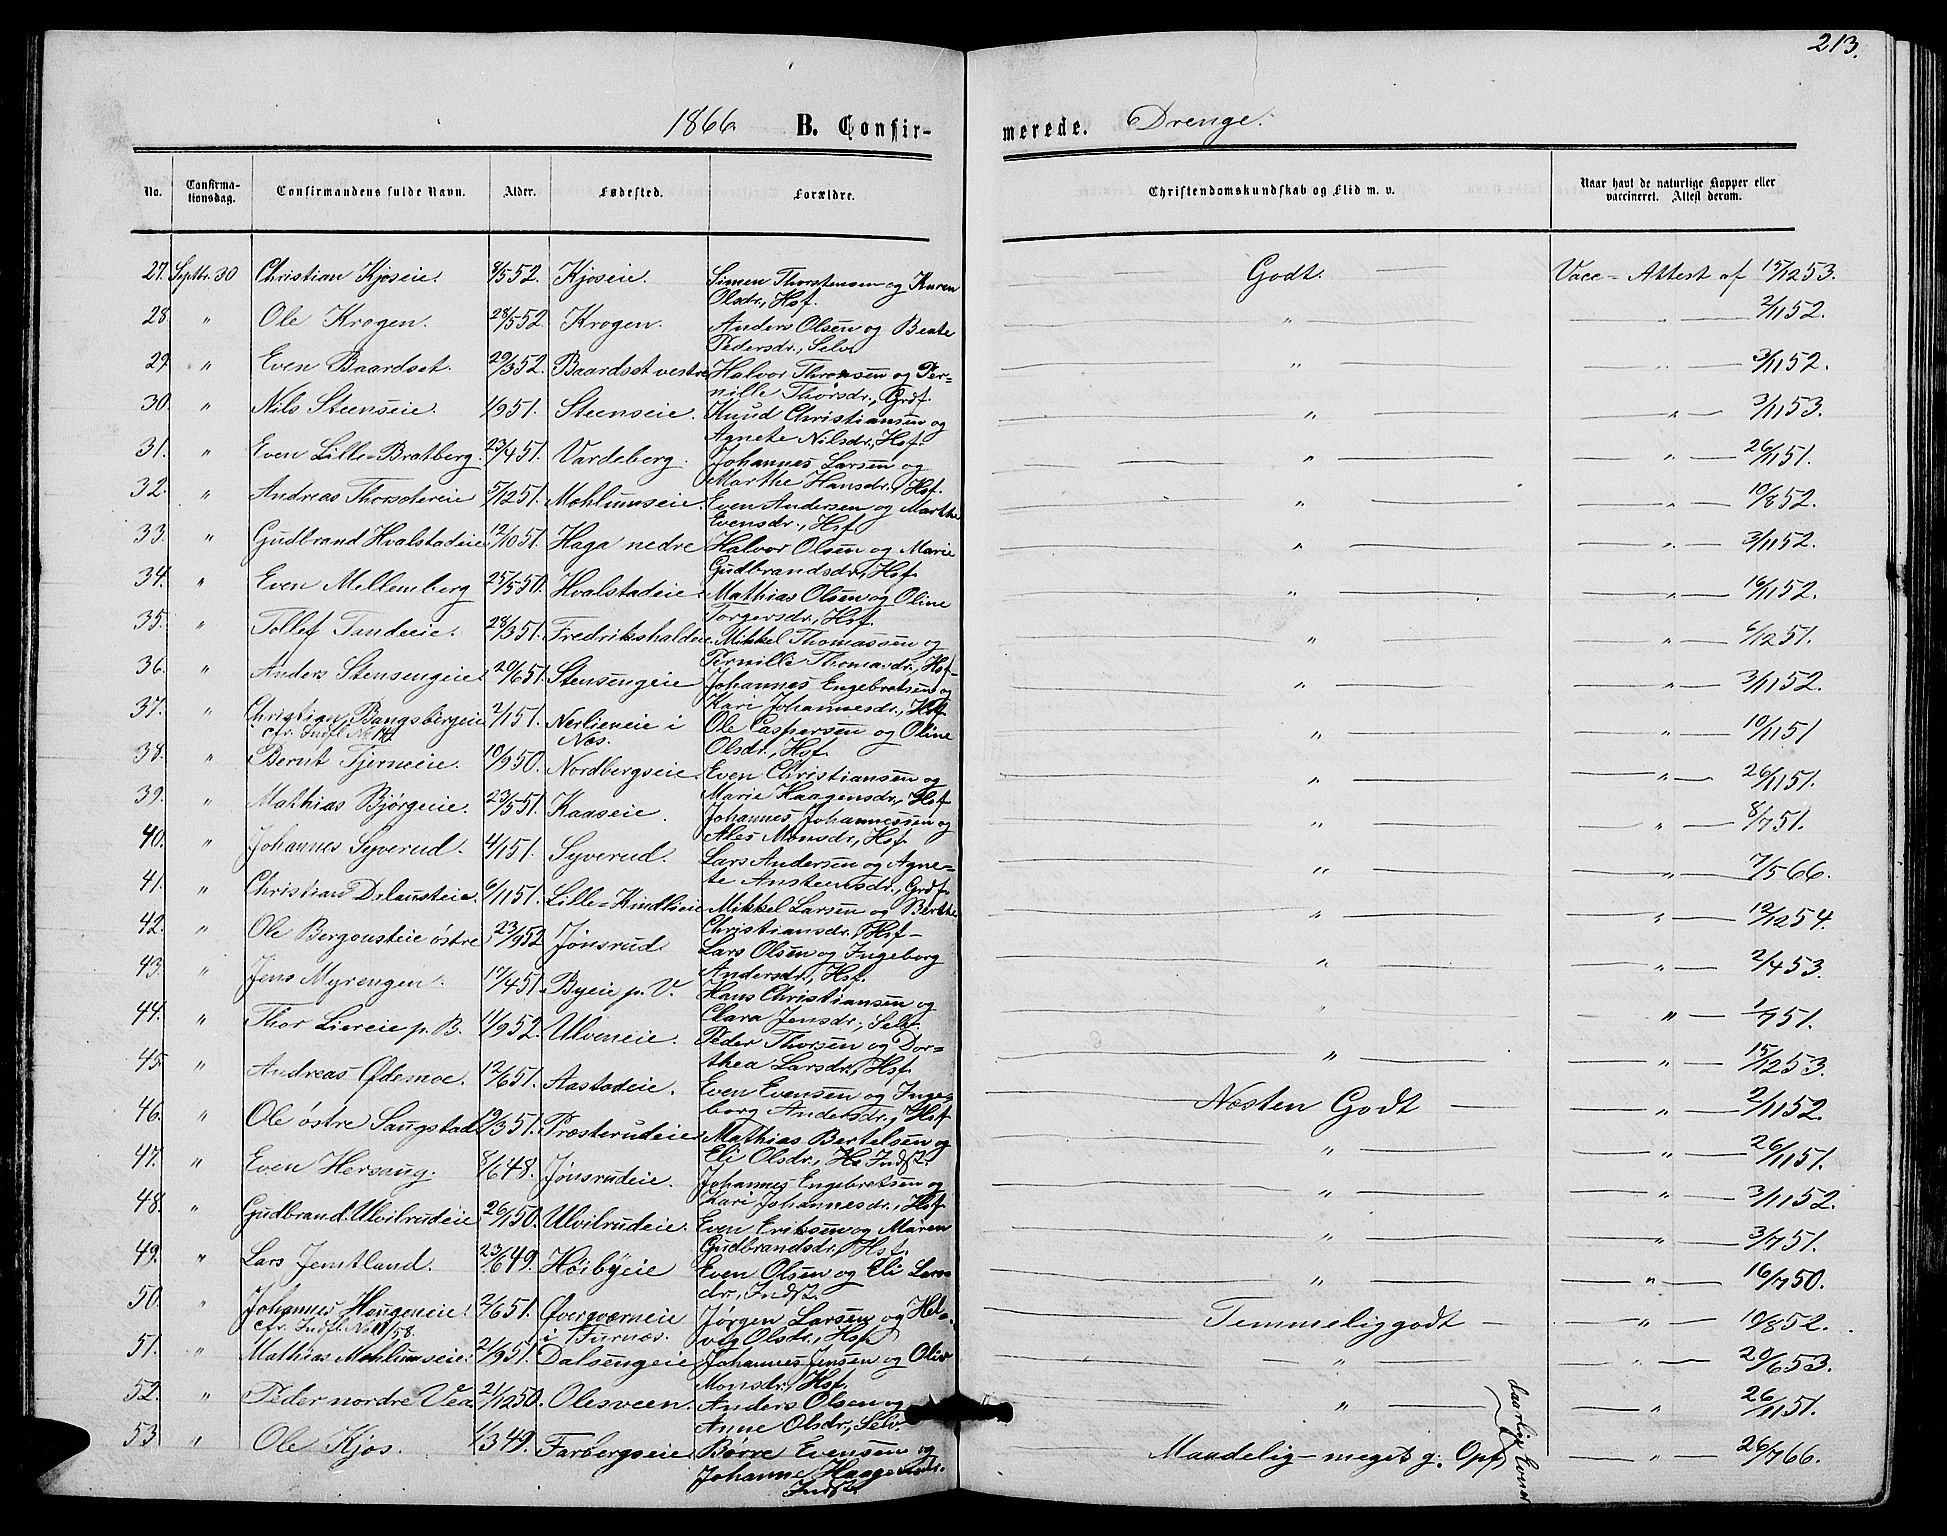 213.
1866 B. Confirmerede. Drenge.
No. Confirmationsdag. Confirmandens fulde Navn. Alder. Fødested. Forældre. Christendomskundskab og Flid m. v. Naar havt de naturlige Kopper eller vaccineret. Attest derom.
27. Septbr. 30 Christian Kjøseie. 8/5 52. Kjøseie. Simen Thorstensen og Karen Olsdr., Hsf. Godt. Vacc-Attest af 15/12 53.
28. " Ole Krogen. 28/5 52. Krogen. Anders Olsen og Beate Pedersdr., Selv. " " 2/11 52.
29. " Even Baardset. 29/3 52. Baardset vestre Halvor Thronsen og Pernille Thorsdr., Grdf. " " 3/11 52.
30. " Nils Steenseie. 1/9 51. Steenseie. Knud Christiansen og Agnete Nilsdr., Hsf. " " 3/11 53.
31. " Even Lille-Bratberg. 23/4 51. Vardeberg. Johannes Larsen og Marthe Hansdr., Hsf. " " 26/11 51.
32. " Andreas Thorsdereie 5/12 51. Mohlumseie. Even Andersen og Marthe Evensdr., Hsf. " " 10/8 52.
33. " Gudbrand Hvalstadeie. 12/10 51. Haga nedre Halvor Olsen og Marie Gudbrandsdr., Hsf. " " 3/11 52.
34. " Even Mellemberg 25/5 50. Hvalstadeie. Mathias Olsen og Oline Torgersdr., Hsf. " " 16/11 52.
35. " Tollef Tandeeie. 28/3 51. Fredrikshaldeie Mikkel Thomassen og Pernille Thomasdr., Hsf. " " 6/12 51.
36. " Anders Stensengeie. 20/6 51. Stensengeie Johannes Engebretsen og Kari Johannesdr., Hsf. " " 3/11 52.
37. " Christian Bangsbergeie cfr. Indfl. No. 14 2/1 51. Nerlieneie i Næs. Ole Caspersen og Oline Olsdr., Hsf. " " 10/11 51
38. " Bernt Tjerneie. 10/9 50. Nordbergseie. Even Christiansen og Marie Haagensdr., Hsf. " " 26/11 51.
39. " Mathias Bjørgeie. 23/5 51. Kaaseie. Johannes Johannessen og Ales Monsdr., Hsf. " " 8/7 51.
40. " Johannes Syverud. 4/1 51. Syverud. Lars Andersen og Agnete Ansteensdr., Grdf. " " 7/5 66.
41. " Christian Delausteie. 6/11 51. Lille-Kindlieie Mikkel Larsen og Berthe Christiansdr., Hsf. " " 12/12 54.
42. " Ole Bergonsteie østre 23/9 52 Jønsrud. Lars Olsen og Ingeborg Andersdr., Hsf. " " 2/4 53.
43. " Jens Myrengen. 17/4 51. Byeie p. V. Hans Christiansen og Clara Jensdr., Selv. " " 1/7 51.
44. " Thor Liereie p. B. 11/9 52. Ulveneie. Peder Thorsen og Dorthea Larsdr., Hsf. " " 15/12 53.
45. " Andreas Ødemoe. 12/6 51. Aastadeie. Even Evensen og Ingeborg Andersdr., Hsf. Næsten Godt " 2/11 52.
46. " Ole østre Saugstad. 19/3 51. Præsterudeie Mathias Bertelsen og Eli Olsdr., Hs Indst. " " 26/11 51.
47. " Even Hersaug. 8/6 48. Jønsrudeie. Johannes Engebretsen og Kari Johannesdr., Hsf. " " 3/11 52.
48. " Gudbrand Ulvilrudeie 26/1 50. Ulvilrudeie. Even Eriksen og Maren Gudbrandsdr., Hsf. " " 3/7 51.
49. " Lars Jemtland. 23/6 49. Høibyeie Even Olsen og Eli Larsdr., Indst. " " 16/7 50.
50. " Johannes Haugeneie. cfr. Indfl. No 11/58. 2/6 51. Øvergværneie i Furnæs. Jørgen Larsen og Helvig Olsdr., Hsf. Temmelig godt " 19/8 52.
51. " Mathias Mohlumseie. 2/9 51. Dalsengeie Johannes Jensen og Oliv Monsdr., Hsf. " " 20/6 53.
52. " Peder nordre Vea 21/12 50. Olesveen. Anders Olsen og Anne Olsdr., Selv. " " 26/11 51.
53 " Ole Kjos. 1/3 49. Farbergseie Børre Evensen og Johanne Haagensdr. Indst. Maadelig - meget g. Opf. daarlig Evner " 26/7 66.